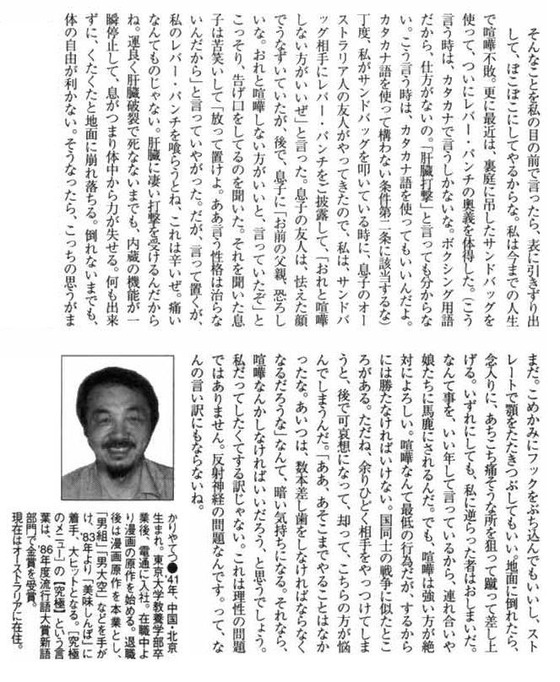 そんなことを私の目の前で言ったら、表に引きずり出
して、ぼこぼこにしてやるからな。私は今までの人生
で喧嘩不敗。更に最近は、裏庭に吊したサンドバッグを
使って、ついにレバー・パンチの奥義を体得した。(こう
言う時は、カタカナで言うしかないな。ボクシング用語
だから、仕方がないの。「肝臓打撃」と言っても分からな
い。こう言う時は、カタカナ語を使ってもいいんだよ。
カタカナ語を使って構わない条件第二条に該当するな)
丁度、私がサンドバッグを叩いている時に、息子のオー
ストラリア人の友人がやってきたので、私は、サンドバ
ッグ相手にレバー・パンチをご披露して、「おれと喧嘩
しない方がいいぜ」と言った。息子の友人は、怯えた顔
でうなずいていたが、後で、息子に「お前の父親、恐ろし
いな。おれと喧嘩しない方がいいと、言っていたぞ」と
こっそり、告げ口をしてるのを聞いた。それを聞いた息
子は苦笑いして「放って置けよ。ああ言う性格は治らな
いんだから」と言っていやがった。だが、言って置くが、
私のレバー・パンチを喰らうとね、これは辛いぜ。痛い
なんてものじゃない。肝臓に凄い打撃を受けるんだから
ね。運良く肝臓破裂で死なないまでも、内蔵の機能が一
瞬停止して、息がつまり体中から力が失せる。何も出来
ずに、くたくたと地面に崩れ落ちる。倒れないまでも、
体の自由が利かない。そうなったら、こっちの思うがま
まだ。こめかみにフックをぶち込んでもいいし、スト
レートで顎をたたきつぶしてもいい。地面に倒れたら、
念入りに、あちこち痛そうな所を狙って蹴って差し上
げる。いずれにしても、私に逆らった者はおしまいだ。
なんて事を、いい年して言っているから、連れ合いや
娘たちに馬鹿にされるんだ。でも、喧嘩は強い方が絶
対によろしい。喧嘩なんて最低の行為だが、するから
には勝たなければいけない。国同士の戦争に似たとこ
ろがある。ただね、余りひどく相手をやっつけてしま
うと、後で可哀想になって、却って、こちらの方が悩
んでしまうんだ。「ああ、あそこまでやることはなか
ったな。あいつは、数本差し歯をしなければならなく
なるだろうな」なんて、暗い気持ちになる。それなら、
喧嘩なんかしなければいいだろう、と思うでしょう。
私だってしたくてする訳じゃない。これは理性の問題
ではありません。反射神経の問題なんです。って、な
んの言い訳にもならないね。
かりやてつ●41年、中国・北京
生まれ。東京大学教養学部卒
業後、電通に入社。在職中よ
り漫画の原作を始める。退職
後は漫画原作を本業とし、
「男組」「男大空」などを手が
け、'83年より「美味しんぼ」に
着手、大ヒットとなる。「究極
のメニュー」の【究極】という言
葉は、'86年度流行語大賞新語
部門で金賞を受賞。
現在はオーストラリアに在住。